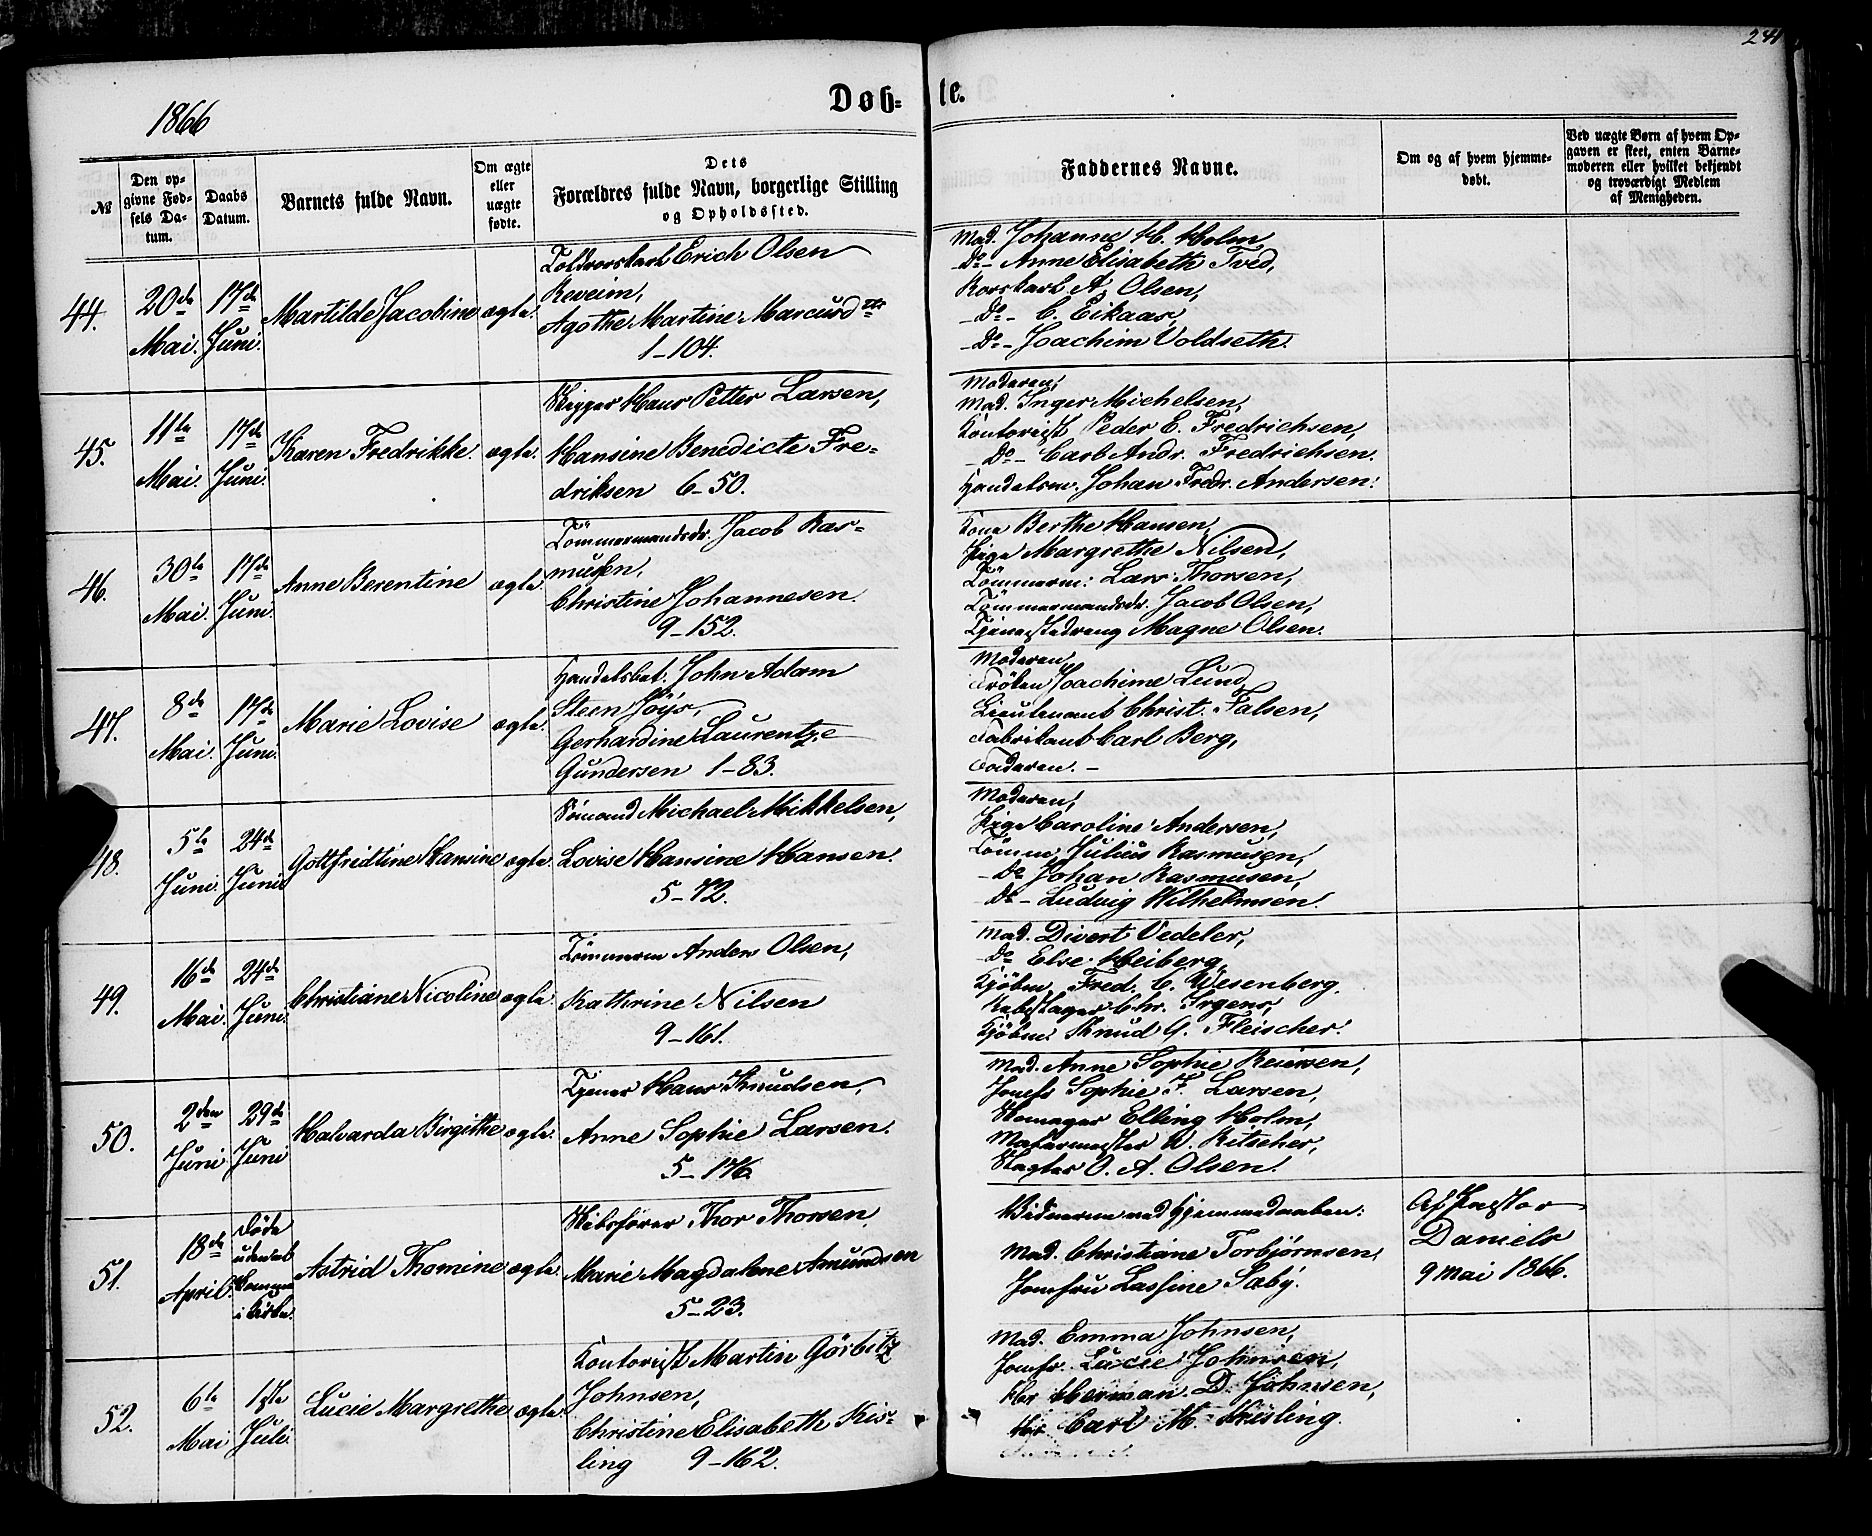 24
1866
Døb-
te.
№
Den op-
givne Fød-
sels Da-
tum.
Daabs
Datum.
Barnets fulde Navn.
Om ægte
eller
uægte
fødte.
Dets
Forældres fulde Navn, borgerlige Stilling
og Opholdssted.
Faddernes Navne.
Om og af hvem hjemme-
døbt.
Ved uægte Børn af hvem Op-
gaven er skeet, enten Barne-
moderen eller hvilket bekjendt
og troværdigt Medlem
af Menigheden.
44.
20de
Mai.
17de
Juni.
Martilde Jacobine
ægte.
Erich Olsen
Reveim,
Agothe Martine Marcusdtr
1-104.
Mad. Johanne H. Holm,
Do- Anne Elisabeth Tved,
A. Olsen,
-Do- C. Eikaas,
-Do- Joachim Voldseth.
45.
11te
Mai.
17de
Juni.
Karen Fredrikke.
ægte.
Skipper Hans Petter Larsen,
Hansine Benedicte Fre-
driksen 6-50.
Moderen,
Mad. Inger Michelsen,
Kontorist Peder E. Fredrichsen,
-Do- Carl Andr. Fredrichsen.
Handelsm. Johan Fredr. Andersen.
46.
30te
Mai.
17de
Juni.
Anne Berentine
ægte.
Tømmermandsdr. Jacob Ras-
musen,
Christine Johannesen.
9-152.
Kone Berthe Hansen,
Pige Margrethe Nilsen,
Tømmerm: Lars Thorsen,
Tømmermandsdr. Jacob Olsen,
Tjenestedreng Magne Olsen.
47.
8de
Mai.
17de
Juni.
Marie Lovise
ægte.
Handelsbet. John Adam
Steen Føys,
Gerhardine Laurentze
Gundersen 1-83.
Moderen,
Frøken Joachime Lund,
Lieutenant Christ. Falsen,
Fabrikant Carl Berg,
Faderen. -
48.
5te
Juni.
24de
Juni
Gottfridtine Hansine
ægte.
Sømand Michael Mikkelsen,
Lovise Hansine Hansen.
5-72.
Moderen,
Pige Caroline Andersen,
Tømm. Julius Rasmusen,
-Do Johan Rasmusen,
Do- Ludvig Wilhelmsen.
49.
16de
Mai.
24de
Juni.
Christiane Nicoline
ægte.
Tømmerm Anders Olsen,
Kathrine Nilsen
9-161.
Mad. Divert Vedeler,
Do Else Heiberg,
Kjøbm. Fred. C. Wesenberg.
Rebslager Chr. Irgens,
Kjøbm. Knud G. Fleischer.
50.
2den
Juni
29de
Juni
Halvarda Birgithe
ægte.
Tjener Hans Knudsen,
Anne Sophie Larsen.
5-176.
Mad. Anne Sophie Reiersen,
Jomfr Sophie F. Larsen,
Skomager Elling Holm,
Malermester W. Ritscher,
Slagter O. A. Olsen.
51.
18de
April.
Døde
uden at
komme
i Kirke.
Astrid Thomine
ægte.
Skibsfører Thor Thorsen,
Marie Magdalene Amundsen
5-23.
Vidnerne ved Hjemmedaaben:
Mad. Christiane Torbjørnsen,
Jomfru Lassine Sæby.
Af Pastor
Daniels
9 Mai 1866.
52.
6te
Mai
1ste
Juli
Lucie Margrethe
ægte.
Kontorist Martin Görbitz
Johnsen,
Christine Elisabeth Kis-
ling 9-162.
Mad. Emma Johnsen,
Jomfr. Lucie Johnsen,
Hr Herman. D. Johnsen,
Hr. Carl M. Kiisling.